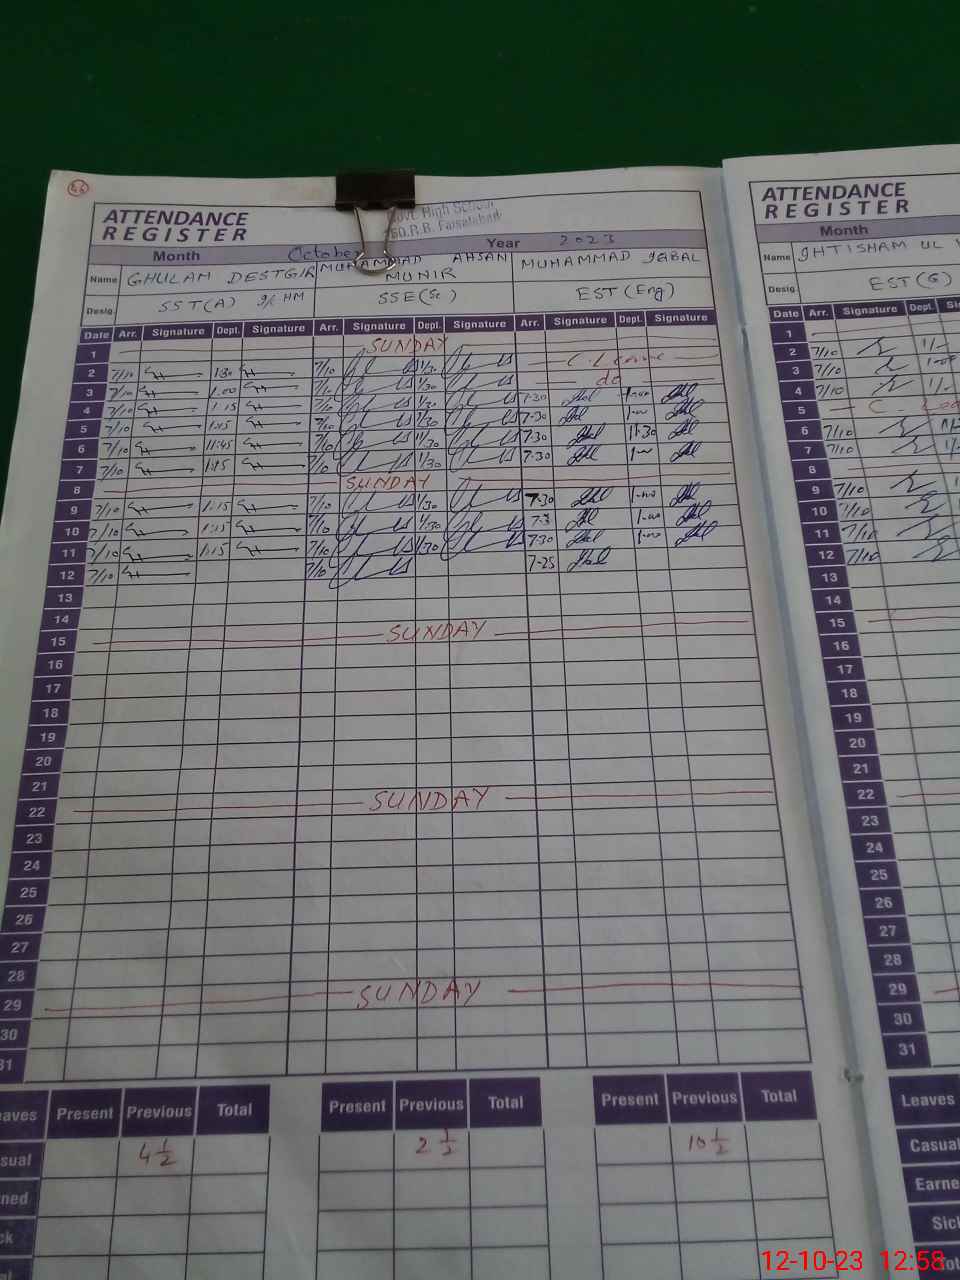 46
ATTENDANCE
REGISTER
Govt. High School
Faisalabad
Month October Year 2023
Name GHULAM DESTGIR MUHAMMAD AHSAN MUNIR MUHAMMAD IQBAL
Desig. SST(A) I/C HM SSE(Sc) EST(Eng)
Date Arr. Signature Dept. Signature Arr. Signature Dept. Signature Arr. Signature Dept. Signature
1 SUNDAY
2 7/10 1:30 7/10 1/30 C. Leave
3 7/10 1.00 7/10 1/30 do
4 7/10 1:15 7/10 1/30 7-30 1-00
5 7/10 7/10 1/30 7-30 1-00
6 7/10 11:45 7/10 11/30 7-30 11-30
7 7/10 1:15 7/10 1/30 7-30 1-00
8 SUNDAY
9 7/10 1:15 7/10 1/30 7-30 1-00
10 7/10 1:15 7/10 1/30 7-3 1-00
11 7/10 1:15 7/10 1/30 7-30 1-00
12 7/10 7/10 7-25
13
14
15 SUNDAY
16
17
18
19
20
21
22 SUNDAY
23
24
25
26
27
28
29 SUNDAY
30
31
Leaves Present Previous Total Present Previous Total Present Previous Total
Casual 4 1/2 2 1/2 10 1/2
ATTENDANCE
REGISTER
Month
Name IHTISHAM UL
Desig. EST(G)
Date Arr. Signature Dept. Signature
1
2 7/10
3 7/10
4 7/10
5 C.
6 7/10
7 7/10
8
9 7/10
10 7/10
11 7/10
12 7/10
13
14
15
16
17
18
19
20
21
22
23
24
25
26
27
28
29
30
31
Leaves
Casual
12-10-23 12:58